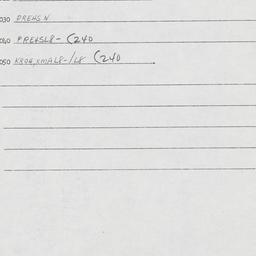 030 DREHS N
040 PREHSL8- C240
050 KBOH,XMAL8-/L8 C240